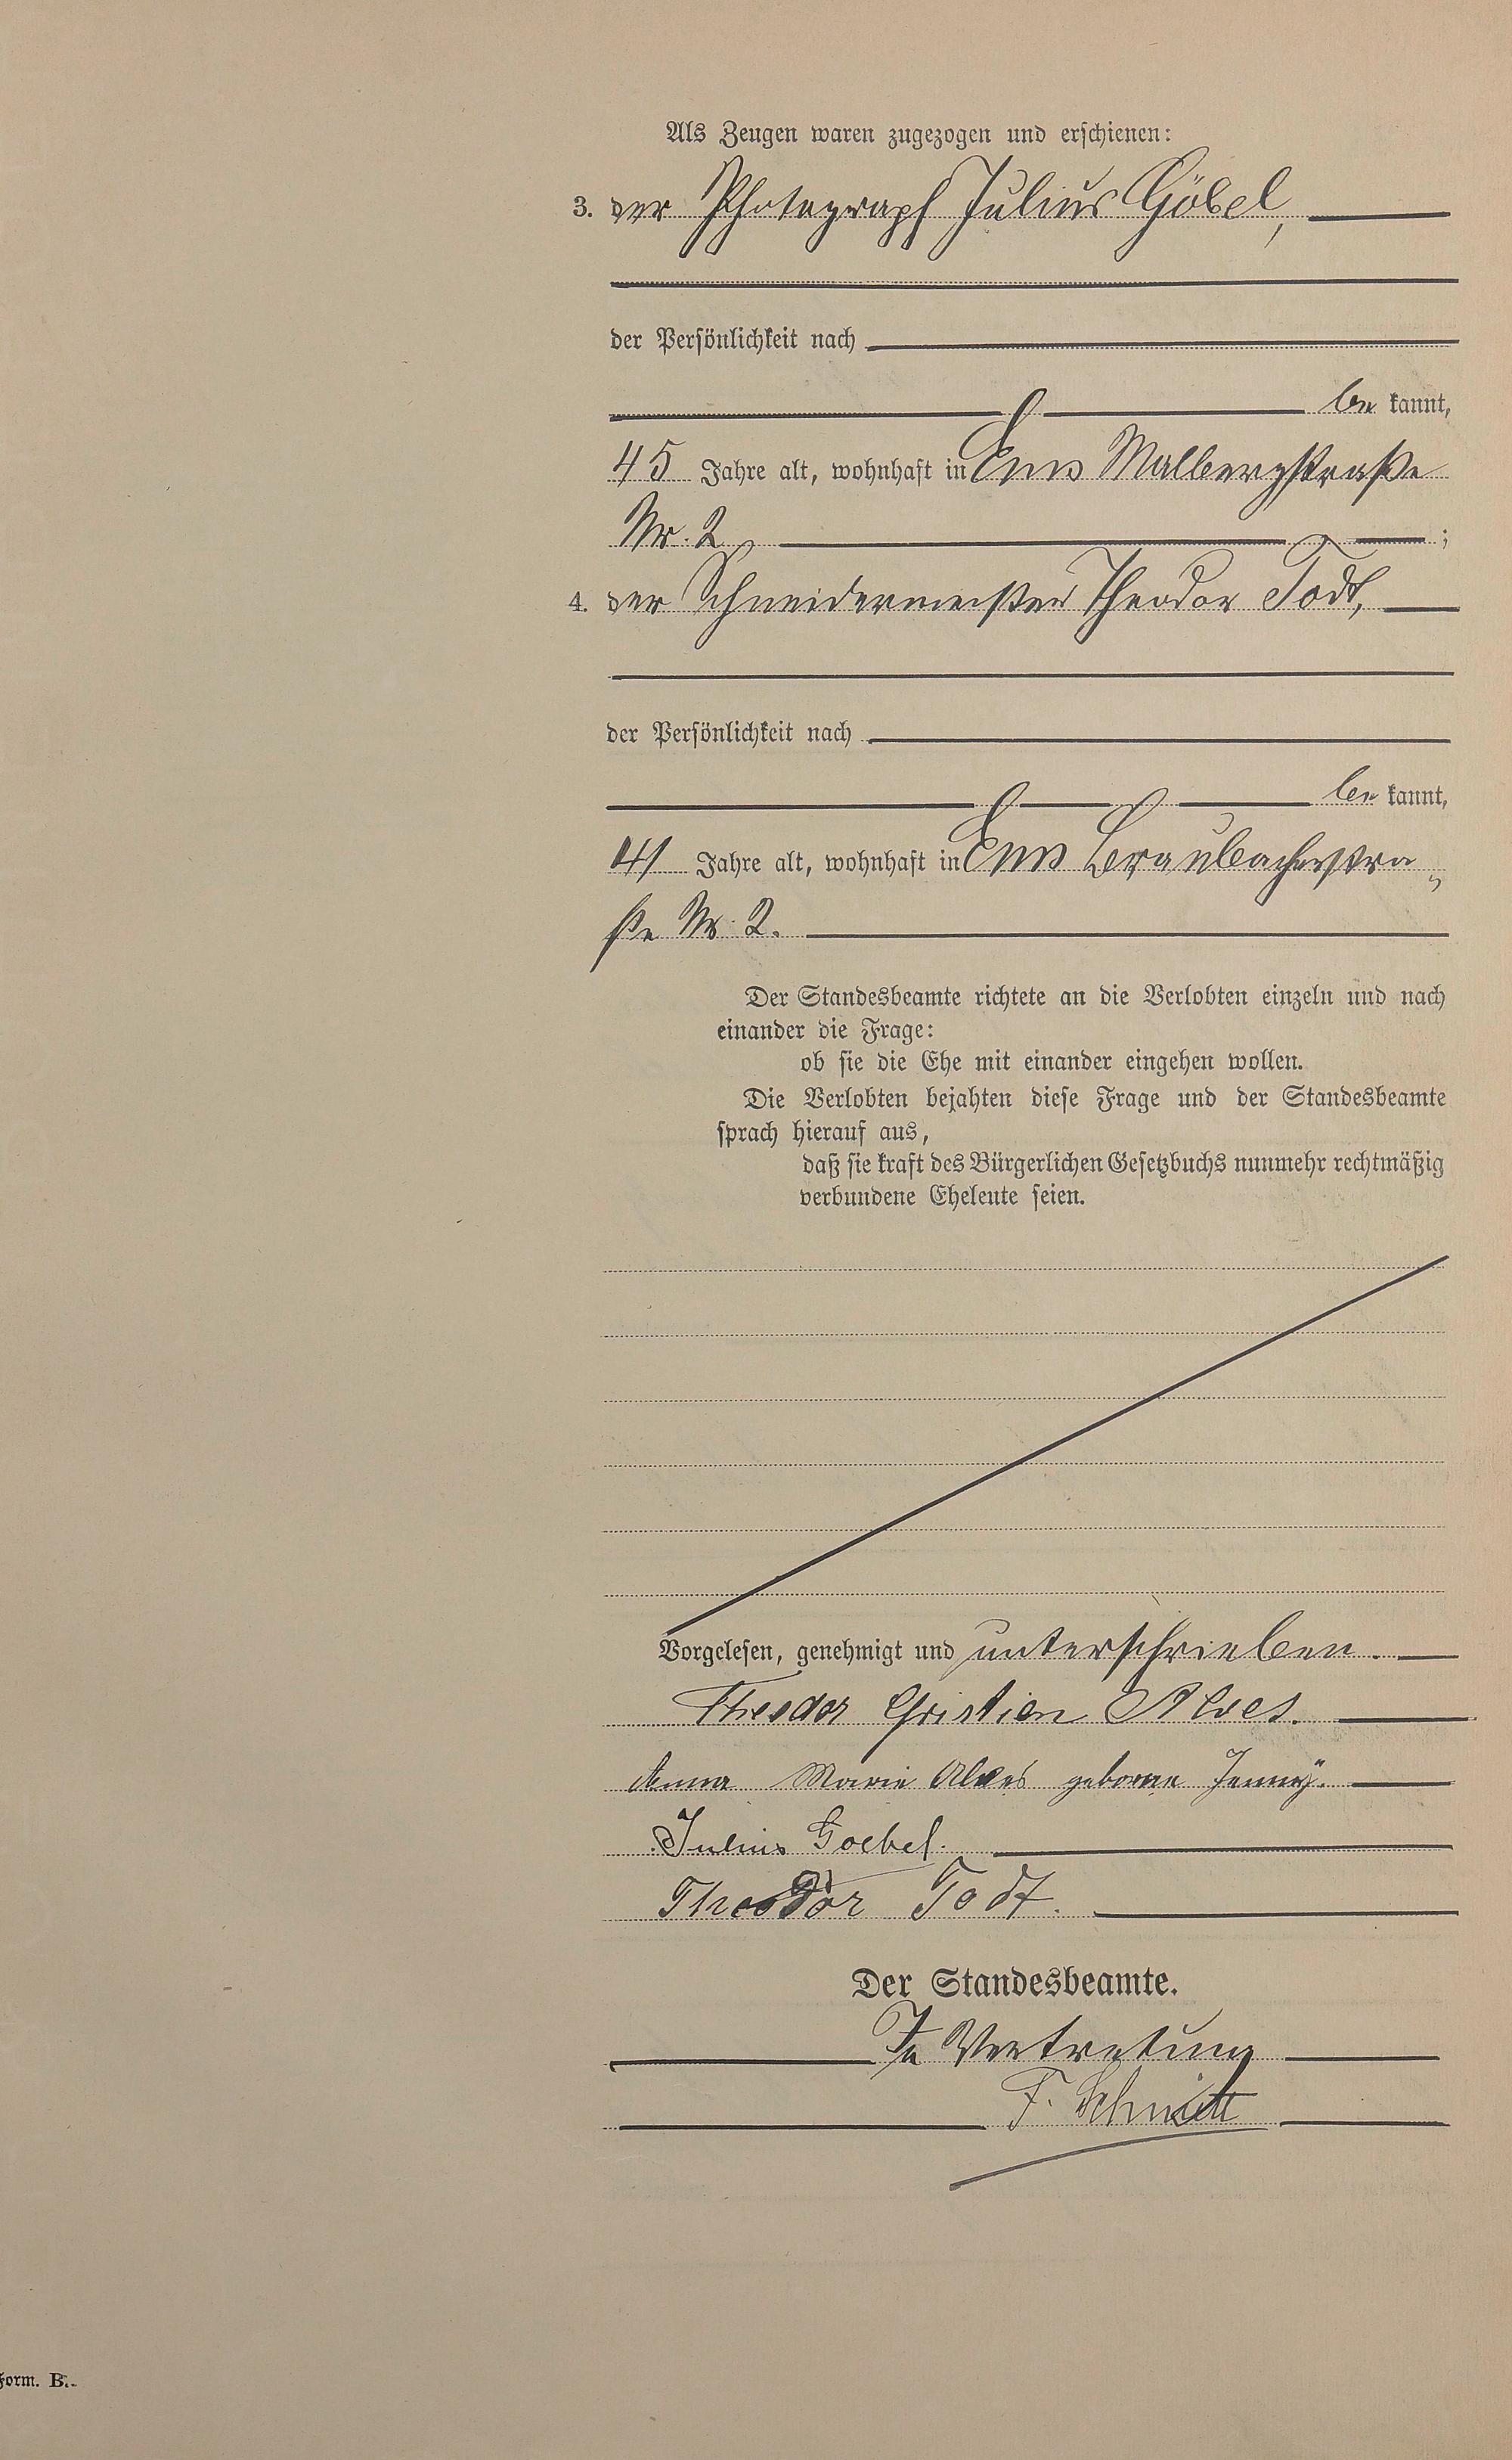 Als Zeugen waren zugezogen und erschienen:
3. der Photograph Julius Göbel,
der Persönlichkeit nach
be kannt,
45 Jahre alt, wohnhaft in Ems Malbergstraße
Nr. 2 ;
4. der Schneidermeister Theodor Todt,
der Persönlichkeit nach
be kannt,
41 Jahre alt, wohnhaft in Ems Braubacherstra„
ße Nr. 2.
Der Standesbeamte richtete an die Verlobten einzeln und nach
einander die Frage:
ob sie die Ehe mit einander eingehen wollen.
Die Verlobten bejahten diese Frage und der Standesbeamte
sprach hierauf aus,
daß sie kraft des Bürgerlichen Gesetzbuchs nunmehr rechtmäßig
verbundene Eheleute seien.
Vorgelesen, genehmigt und unterschrieben.
Theodor Christian Alves.
Anna Marie Alves geborne Jenny.
Julius Goebel.
Theodor Todt.
Der Standesbeamte.
In Vertretung
F. Schmitt
Form. B.